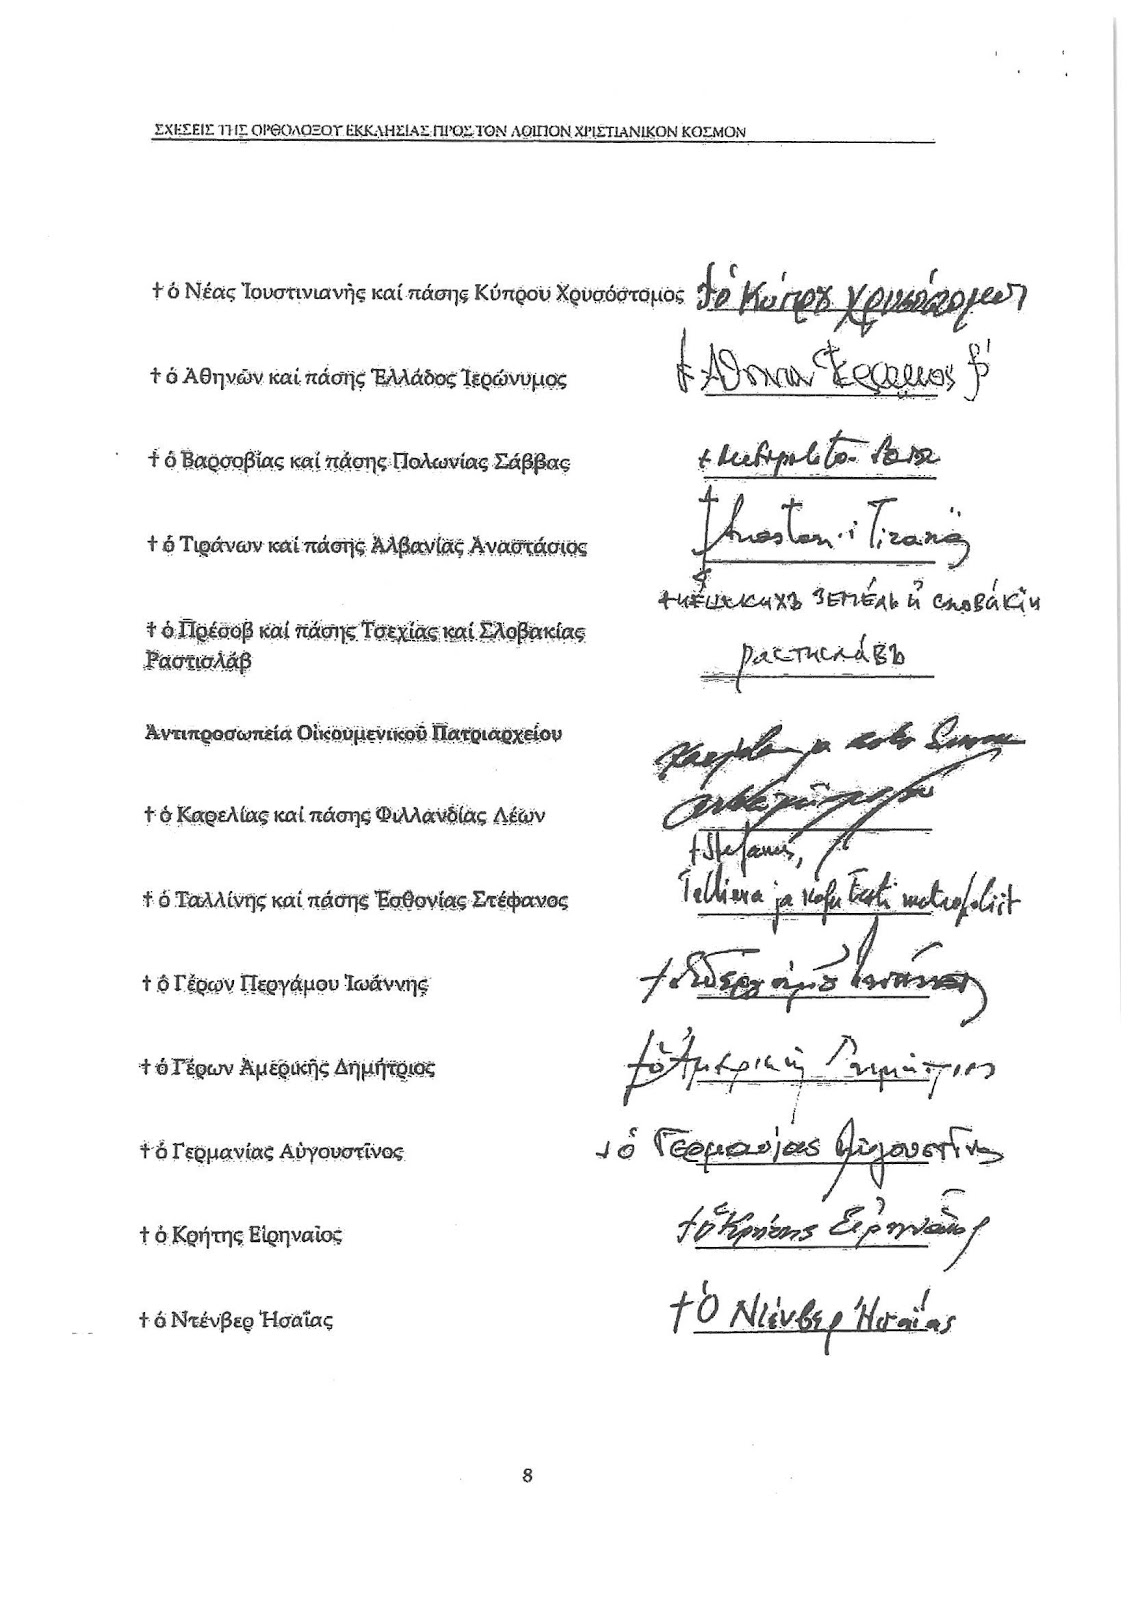 ΣΧΕΣΕΙΣ ΤΗΣ ΟΡΘΟΔΟΞΟΥ ΕΚΚΛΗΣΙΑΣ ΠΡΟΣ ΤΟΝ ΛΟΙΠΟΝ ΧΡΙΣΤΙΑΝΙΚΟΝ ΚΟΣΜΟΝ
† ὁ Νέας Ἰουστινιανῆς καί πάσης Κύπρου Χρυσόστομος † ὁ Κύπρου Χρυσόστομος
† ὁ Ἀθηνῶν καί πάσης Ἑλλάδος Ἱερώνυμος † Ἀθηνῶν Ἱερώνυμος β'
† ὁ Βαρσοβίας καί πάσης Πολωνίας Σάββας †
† ὁ Τιράνων καί πάσης Ἀλβανίας Ἀναστάσιος †
† ὁ Πρέσοβ καί πάσης Τσεχίας καί Σλοβακίας
Ραστισλάβ
Ἀντιπροσωπεία Οἰκουμενικοῦ Πατριαρχείου
† ὁ Καρελίας καί πάσης Φιλλανδίας Λέων
† Stefanus,
† ὁ Ταλλίνης καί πάσης Ἐσθονίας Στέφανος Tallinna ja kogu Eesti metropoliit
† ὁ Γέρων Περγάμου Ἰωάννης † ὁ Περγάμου Ἰωάννης
† ὁ Γέρων Ἀμερικῆς Δημήτριος † ὁ Ἀμερικῆς Δημήτριος
† ὁ Γερμανίας Αὐγουστῖνος † ὁ Γερμανίας Αὐγουστῖνος
† ὁ Κρήτης Εἰρηναῖος † ὁ Κρήτης Εἰρηναῖος
† ὁ Ντένβερ Ἡσαΐας † Ὁ Ντένβερ Ἡσαΐας
8